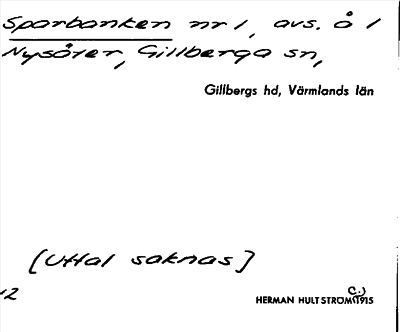 Sparbanken nr 1, avs. å 1
Nysäter, Gillberga sn,
Gillbergs hd, Värmlands län
[Uttal saknas]
HERMAN HULTSTRÖM (C.) 1915